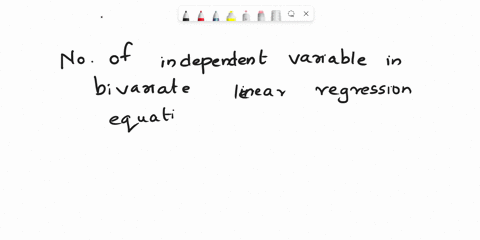 No. of independent variable in
bivariate linear regression
equati